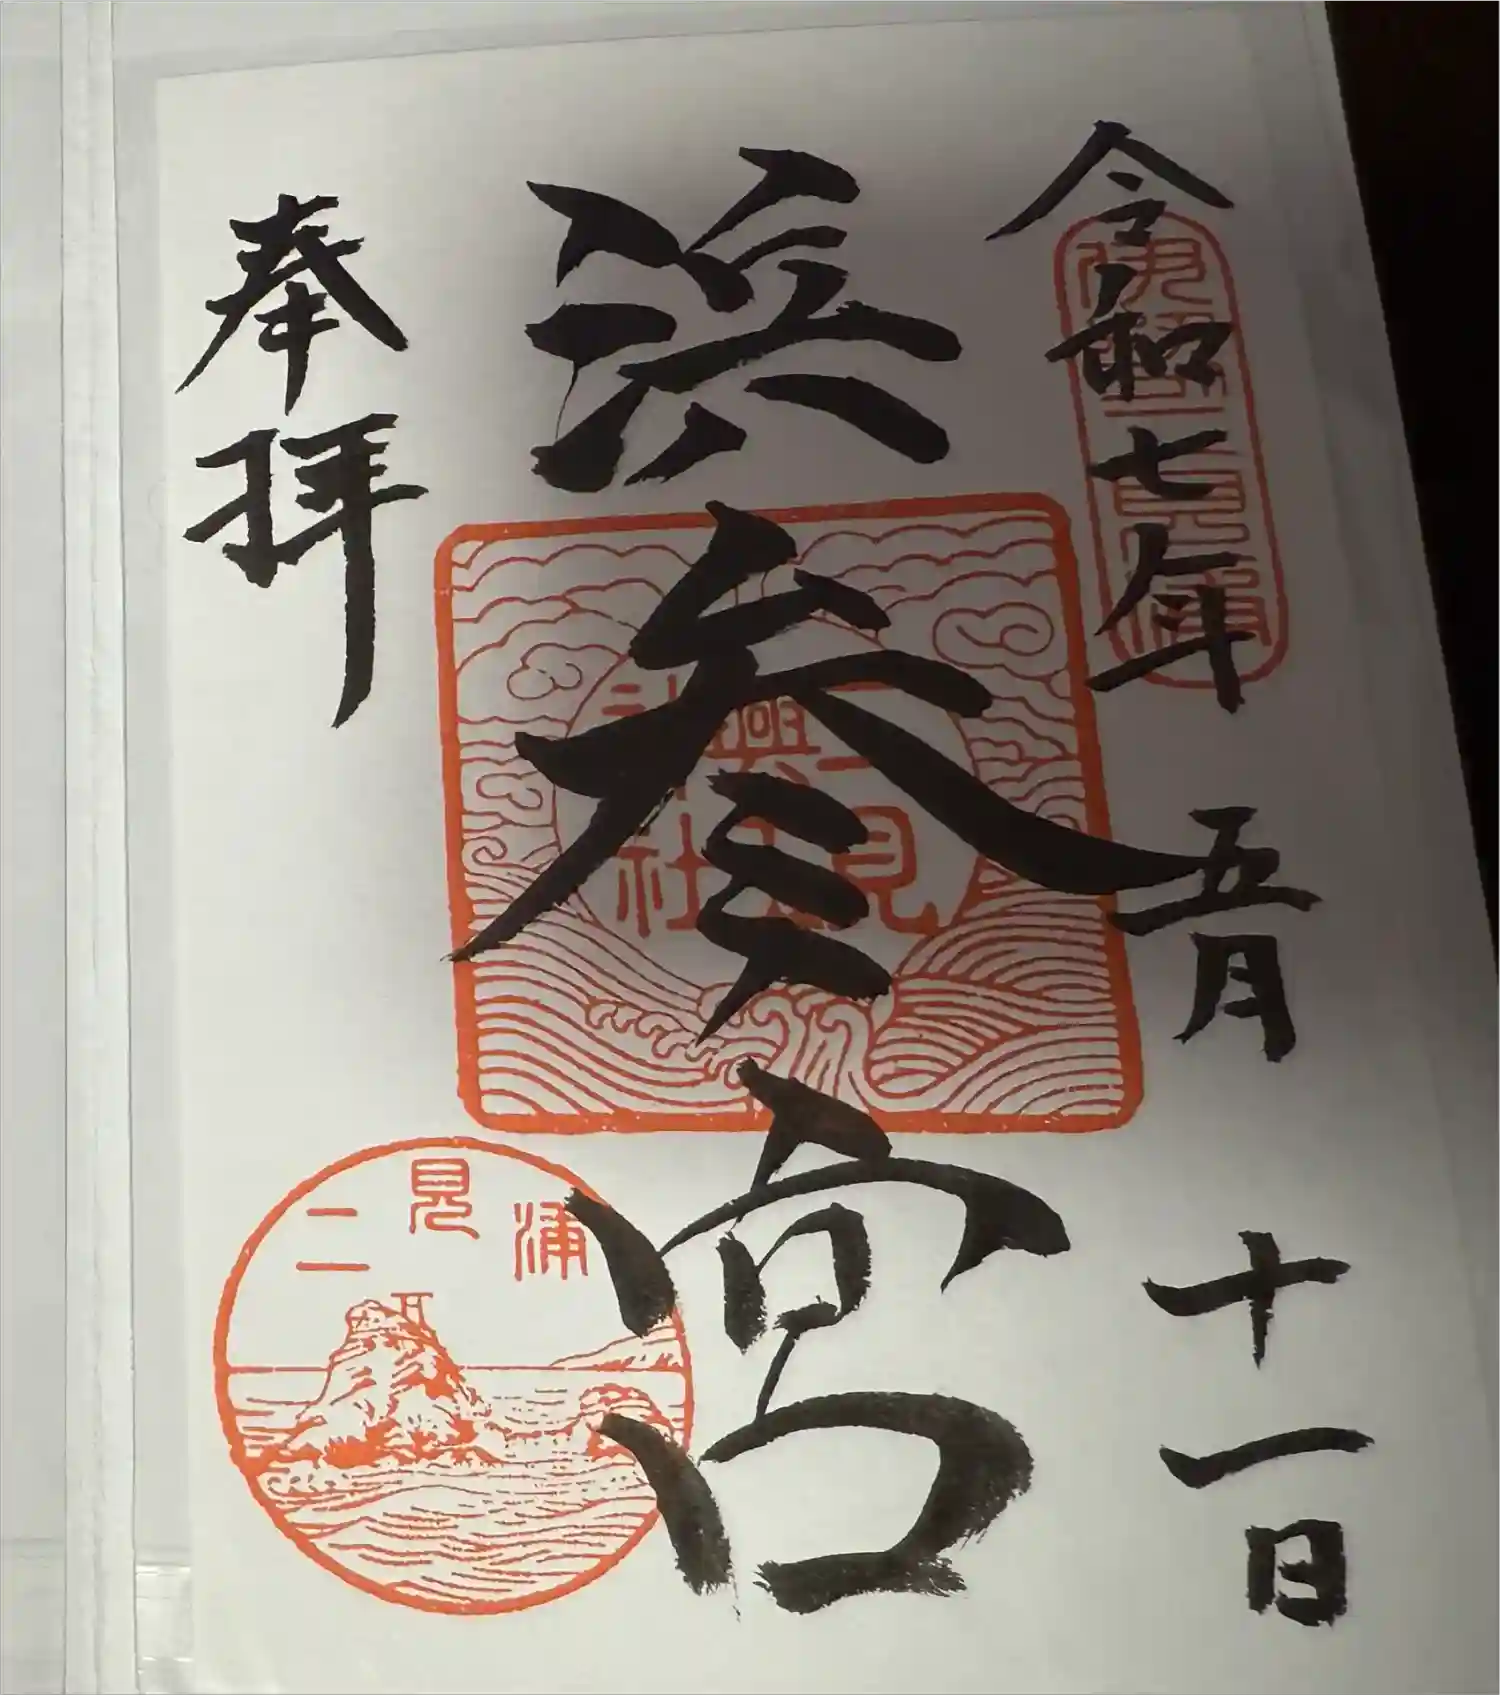 令和七年 五月 十一日
伊勢二見浦
浜参宮
二見
興玉
神社
奉拝
二見浦